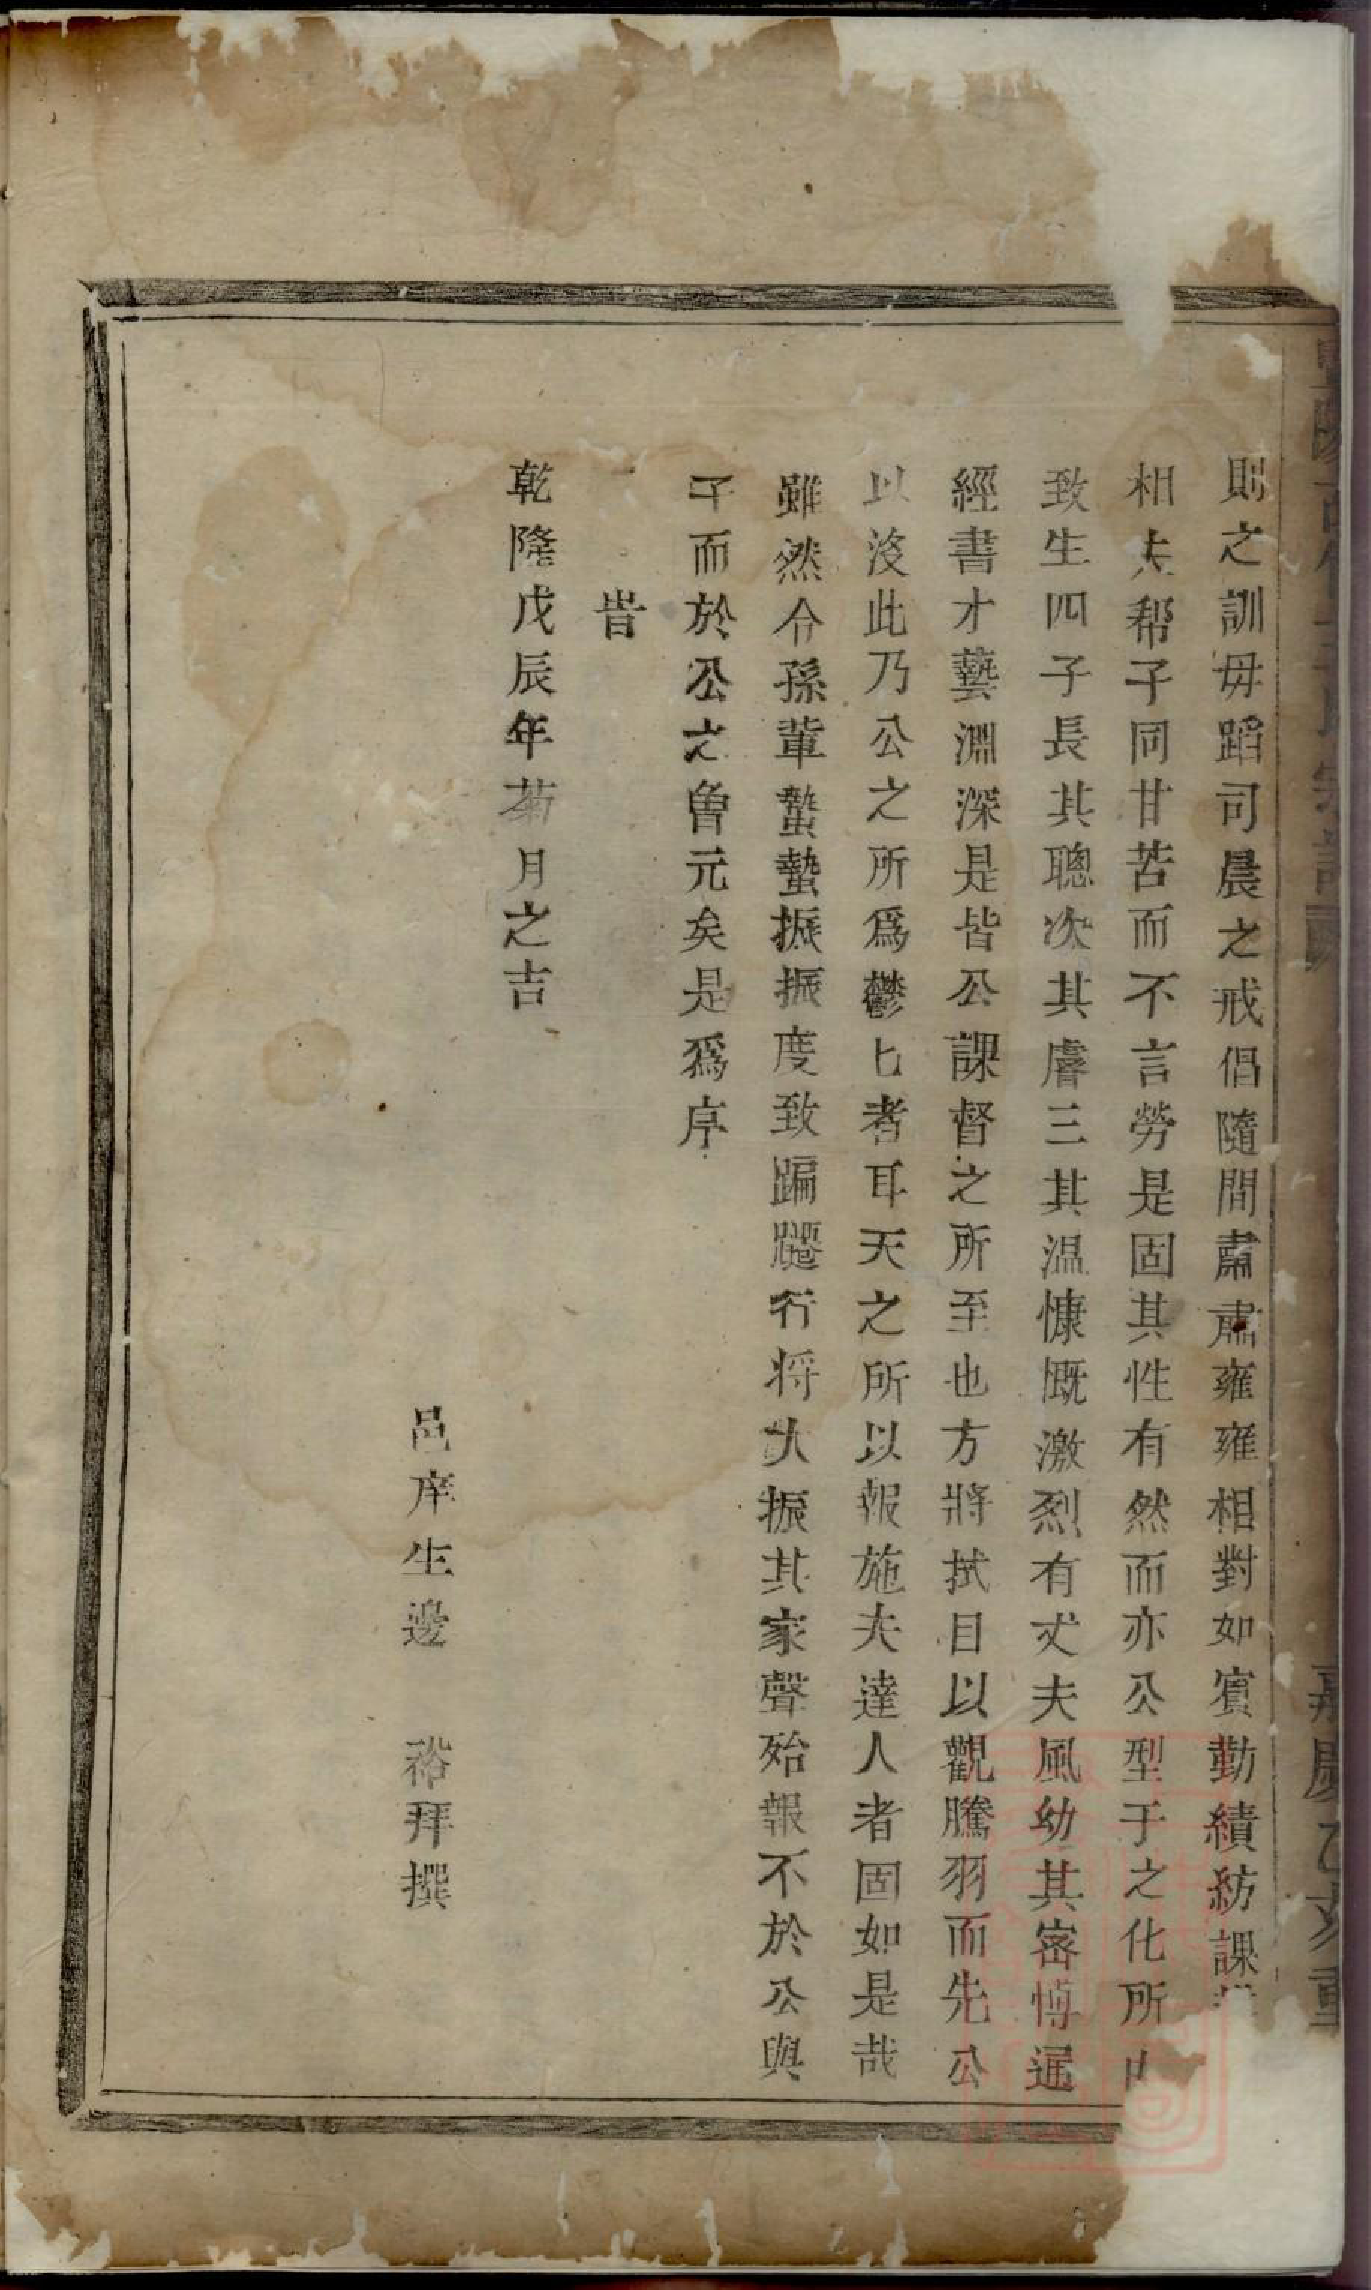 則之訓毋蹈司晨之戒倡隨間肅肅雍雍相對如賓勤績紡課
相夫帮子同甘苦而不言勞是固其性有然而亦公型于之化所
致生四子長其聰次其睿三其温慷慨激烈有丈夫風幼其密博通
經書才藝淵深是皆公課督之所至也方將拭目以觀騰羽而先公
以沒此乃公之所爲鬱匕者耳天之所以報施夫達人者固如是哉
雖然令孫輩蟄蟄振振度致蹁躚行将大振其家聲殆報不於公與
子而於公之曾元矣是爲序
旹
乾隆戊辰年菊月之吉
邑庠生邊 裕拜撰
嘉慶乙亥重